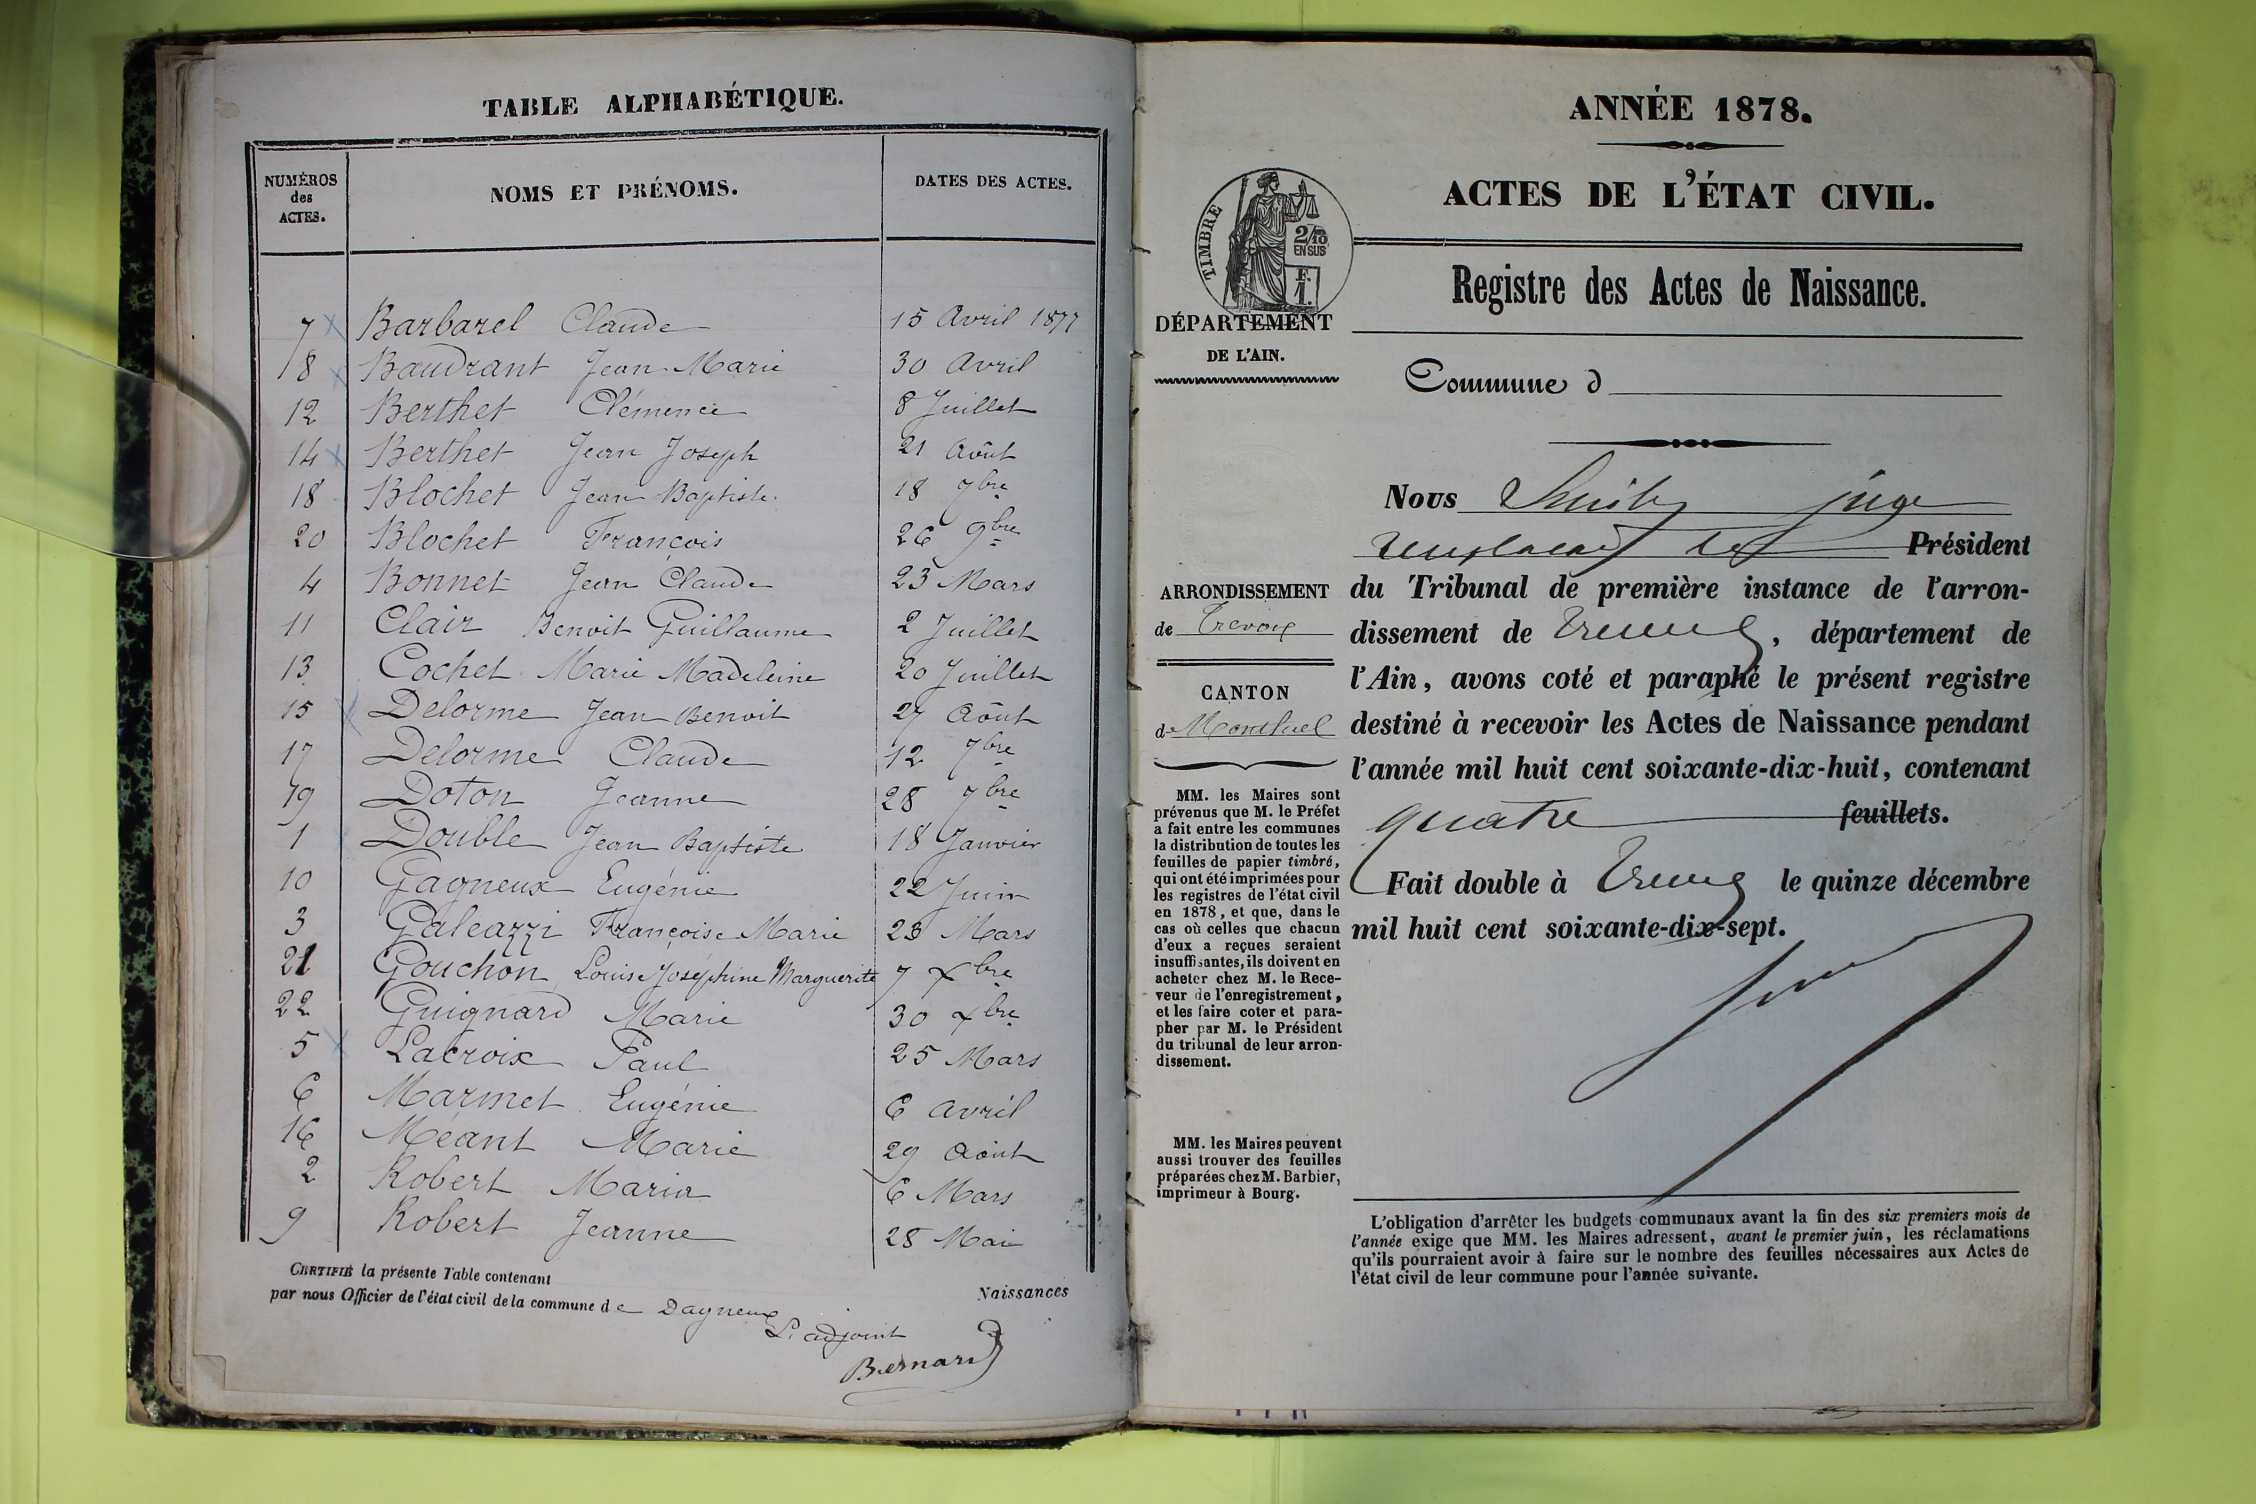 TABLE ALPHABÉTIQUE.
NUMÉROS des ACTES. NOMS ET PRÉNOMS. DATES DES ACTES.
7 Barbarel Claude 15 Avril 1877
8 Baudrant Jean Marie 30 Avril
12 Berthet Clémence 8 Juillet
14 Berthet Jean Joseph 21 Août
18 Blochet Jean Baptiste 18 7bre
20 Blochet François 26 9bre
4 Bonnet Jean Claude 23 Mars
11 Clair Benoit Guillaume 2 Juillet
13 Cochet Marie Madeleine 20 Juillet
15 Delorme Jean Benoit 27 Août
17 Delorme Claude 12 7bre
19 Doton Jeanne 28 7bre
1 Double Jean Baptiste 18 Janvier
10 Gagneux Eugénie 22 Juin
3 Galeazzi Françoise Marie 23 Mars
21 Gouchon Louise Joséphine Marguerite 7 xbre
22 Guignard Marie 30 xbre
5 Lacroix Paul 25 Mars
6 Marmet Eugénie 6 Avril
16 Méant Marie 29 Août
2 Robert Maria 6 Mars
9 Robert Jeanne 28 Mai
CERTIFIÉ la présente Table contenant Naissances
par nous Officier de l'état civil de la commune de Dagneux
L'adjoint
Bernard
ANNÉE 1878.
ACTES DE L'ÉTAT CIVIL.
TIMBRE
2/10 EN SUS
F. 1.
Registre des Actes de Naissance.
DÉPARTEMENT
DE L'AIN.
Commune d
ARRONDISSEMENT
de Trevoux
CANTON
de Montluel
MM. les Maires sont
prévenus que M. le Préfet
a fait entre les communes
la distribution de toutes les
feuilles de papier timbré,
qui ont été imprimées pour
les registres de l'état civil
en 1878, et que, dans le
cas où celles que chacun
d'eux a reçues seraient
insuffisantes, ils doivent en
acheter chez M. le Rece-
veur de l'enregistrement,
et les faire coter et para-
pher par M. le Président
du tribunal de leur arron-
dissement.
MM. les Maires peuvent
aussi trouver des feuilles
préparées chez M. Barbier,
imprimeur à Bourg.
Nous juge
Président
du Tribunal de première instance de l'arron-
dissement de Trevoux, département de
l'Ain, avons coté et paraphé le présent registre
destiné à recevoir les Actes de Naissance pendant
l'année mil huit cent soixante-dix-huit, contenant
quatre feuillets.
Fait double à Trevoux le quinze décembre
mil huit cent soixante-dix-sept.
L'obligation d'arrêter les budgets communaux avant la fin des six premiers mois de
l'année exige que MM. les Maires adressent, avant le premier juin, les réclamations
qu'ils pourraient avoir à faire sur le nombre des feuilles nécessaires aux Actes de
l'état civil de leur commune pour l'année suivante.